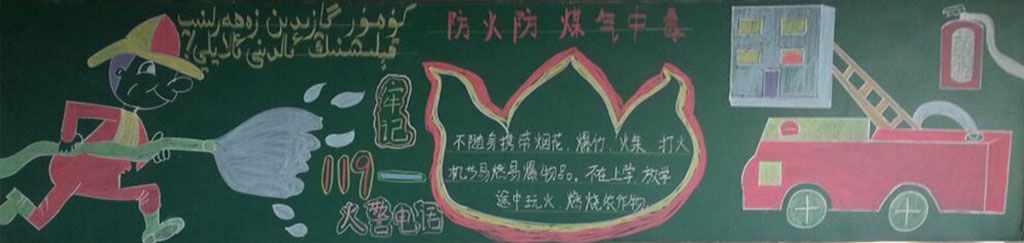 كۆمۈر گازىدىن زەھەرلىنىپ
قېلىشنىڭ ئالدىنى ئالايلى؟
防火防 煤气中毒
牢记
119一
火警电话
不随身携带烟花、爆竹、火柴、打火
机等易燃易爆物品。不在上学 放学
途中玩火 燃烧农作物。